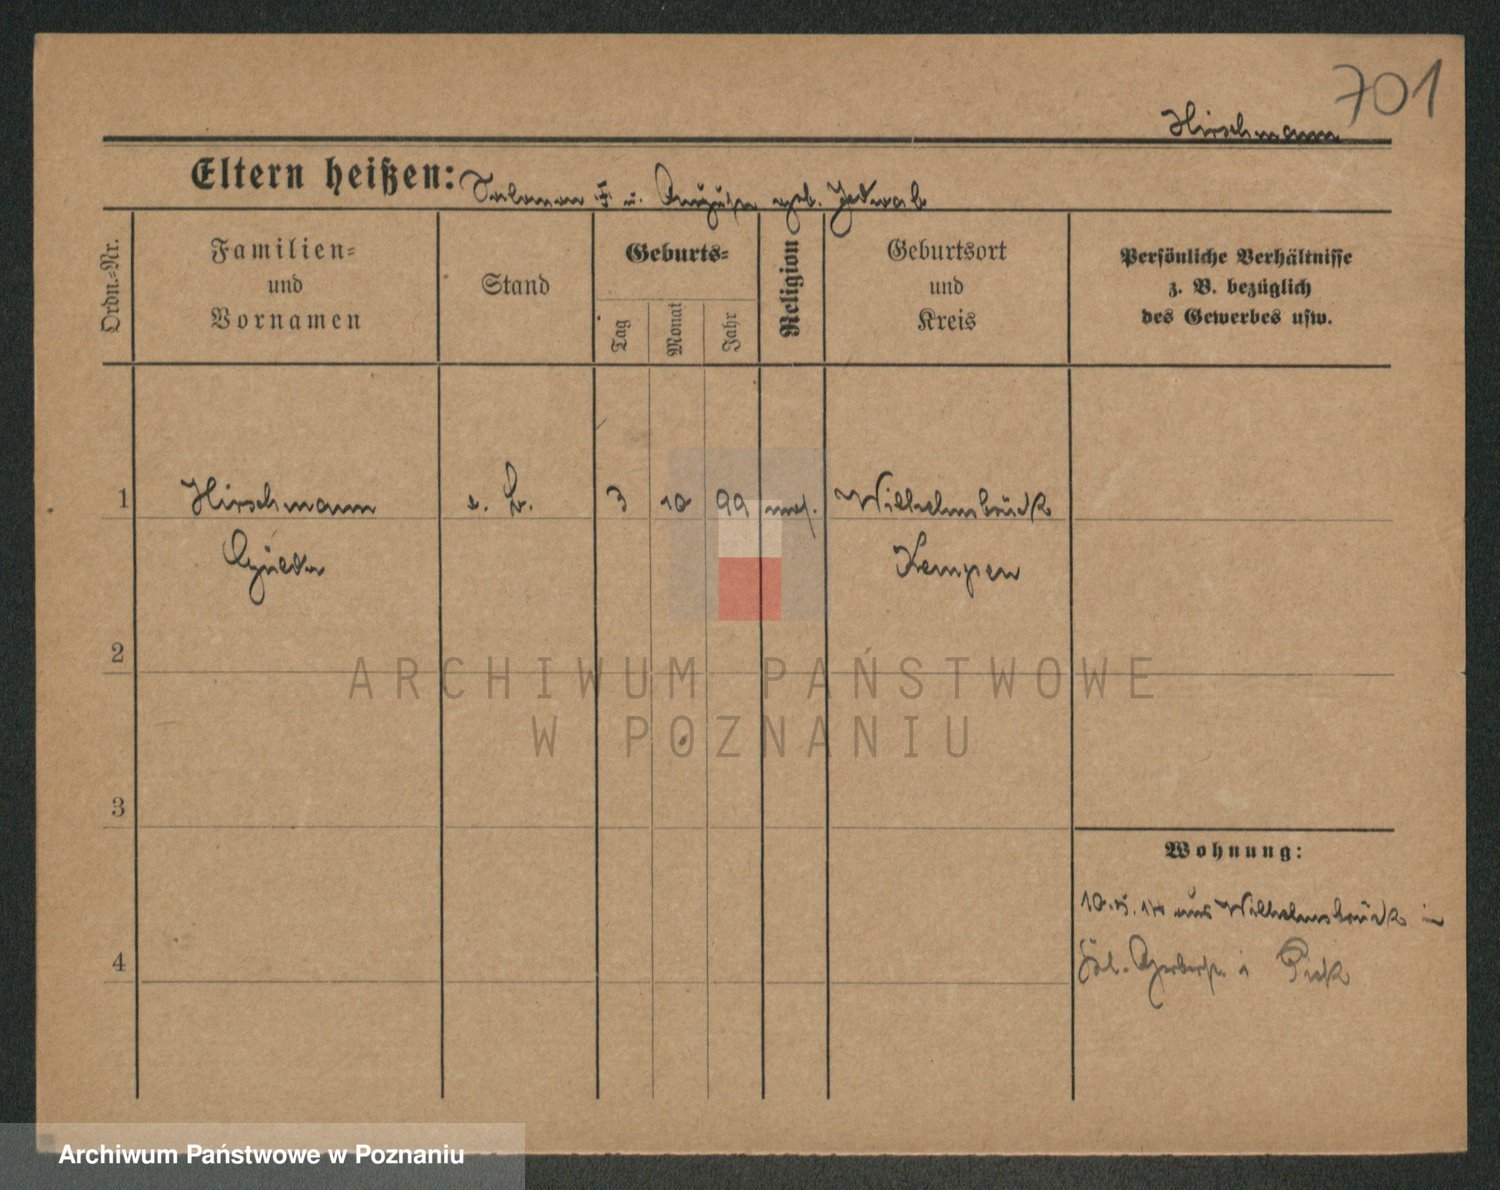 701
Hirschmann
Eltern heißen: Salomon u. Auguste geb. Jedwab
Ordn.-Nr.
Familien-
und
Vornamen
Stand
Geburts-
Tag
Monat
Jahr
Religion
Geburtsort
und
Kreis
Persönliche Verhältnisse
z. B. bezüglich
des Gewerbes usw.
1 Hirschmann 3 10 99 mos. Wilhelmsbrück
Kempen
2
ARCHIWUM PAŃSTWOWE
W POZNANIU
3
Wohnung:
aus Wilhelmsbrück in
4
Archiwum Państwowe w Poznaniu